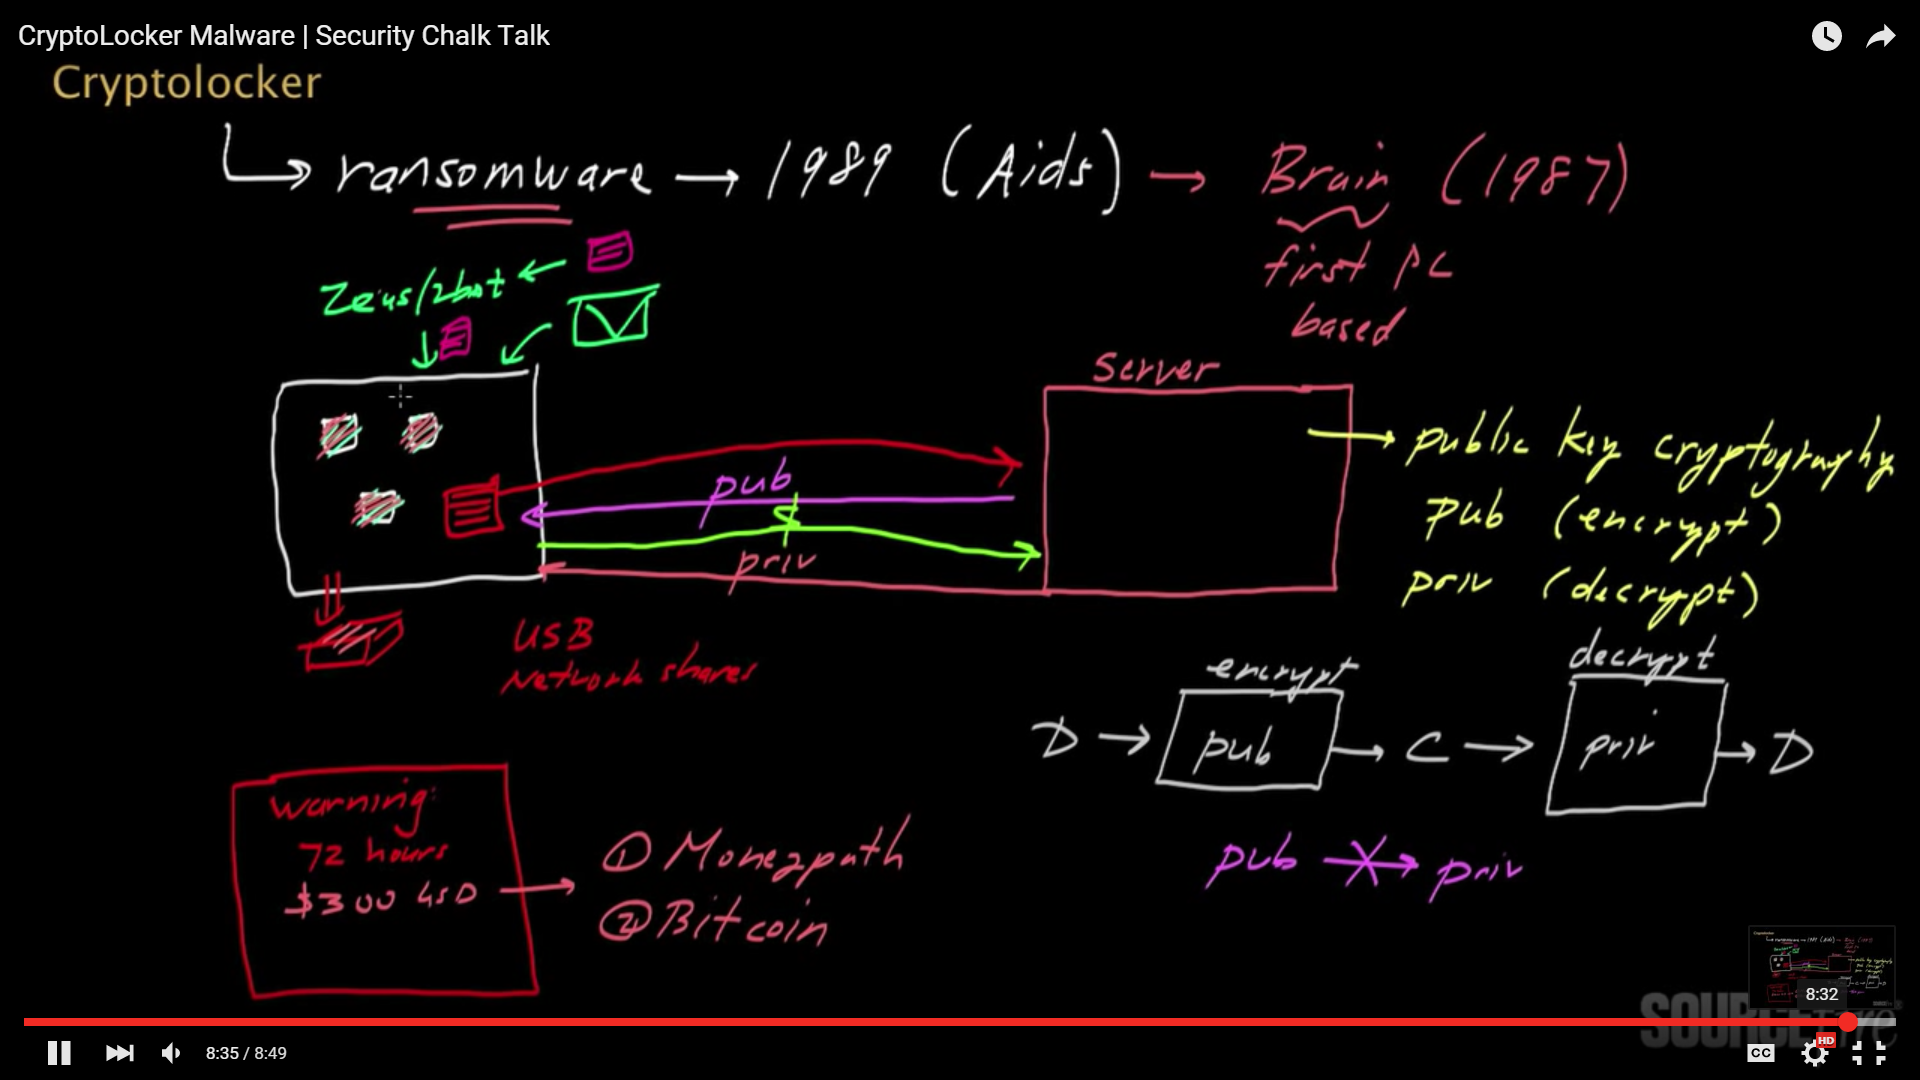 CryptoLocker Malware | Security Chalk Talk
Cryptolocker
ransomware → 1989 (Aids) → Brain (1987)
first PC
based
Zeus/zbot
Server
public key cryptography
pub (encrypt)
priv (decrypt)
pub
$
priv
USB
Network shares
encrypt
decrypt
D → pub → C → priv → D
Warning:
72 hours
$300 USD
① Moneypath
② Bitcoin
pub → priv
8:32
8:35 / 8:49
CC
HD